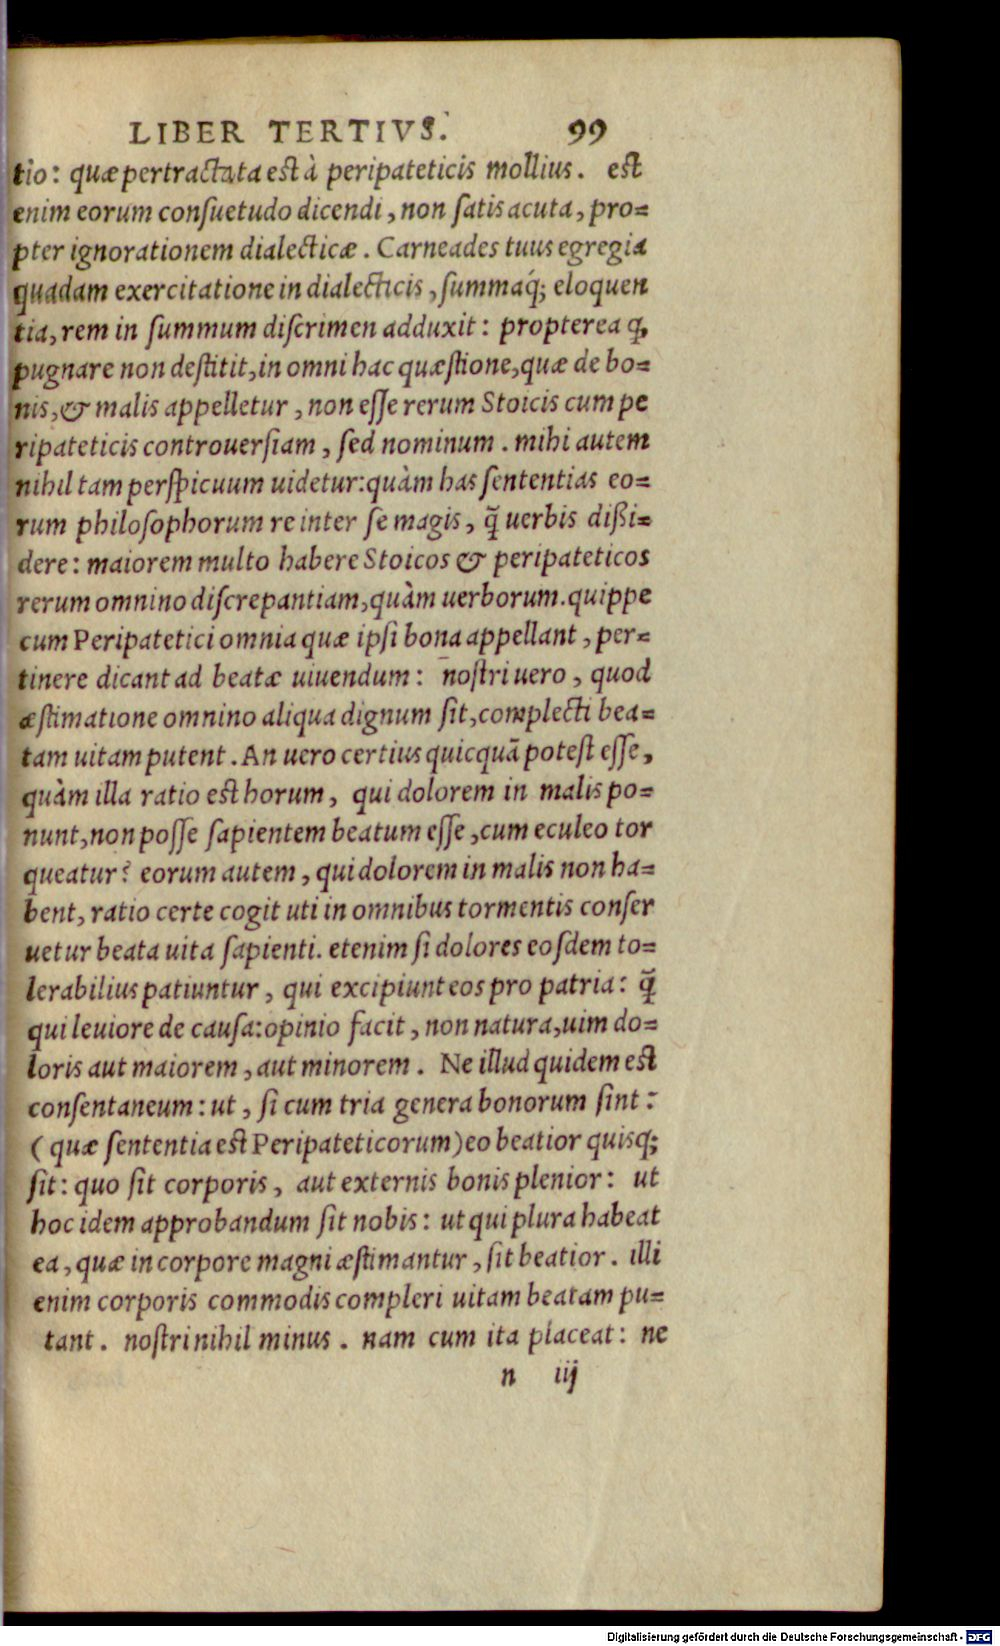 LIBER TERTIVS. 99
tio: quæ pertractata est à peripateticis mollius. est
enim eorum consuetudo dicendi, non satis acuta, pro=
pter ignorationem dialecticæ. Carneades tuus egregia
quadam exercitatione in dialecticis, summaq́; eloquen
tia, rem in summum discrimen adduxit: propterea ꝙ
pugnare non destitit, in omni hac quæstione, quæ de bo=
nis, & malis appelletur, non esse rerum Stoicis cum pe
ripateticis controuersiam, sed nominum. mihi autem
nihil tam perspicuum uidetur: quàm has sententias eo=
rum philosophorum re inter se magis, q̃ uerbis dißi=
dere: maiorem multo habere Stoicos & peripateticos
rerum omnino discrepantiam, quàm uerborum. quippe
cum Peripatetici omnia quæ ipsi bona appellant, per=
tinere dicant ad beatæ uiuendum: nostri uero, quod
æstimatione omnino aliqua dignum sit, complecti bea=
tam uitam putent. An uero certius quicquã potest esse,
quàm illa ratio est horum, qui dolorem in malis po=
nunt, non posse sapientem beatum esse, cum eculeo tor
queatur? eorum autem, qui dolorem in malis non ha=
bent, ratio certe cogit uti in omnibus tormentis conser
uetur beata uita sapienti. etenim si dolores eosdem to=
lerabilius patiuntur, qui excipiunt eos pro patria: q̃
qui leuiore de causa: opinio facit, non natura, uim do=
loris aut maiorem, aut minorem. Ne illud quidem est
consentaneum: ut, si cum tria genera bonorum sint:
(quæ sententia est Peripateticorum) eo beatior quisq;
sit: quo sit corporis, aut externis bonis plenior: ut
hoc idem approbandum sit nobis: ut qui plura habeat
ea, quæ in corpore magni æstimantur, sit beatior. illi
enim corporis commodis compleri uitam beatam pu=
tant. nostri nihil minus. nam cum ita placeat: ne
n iij
Digitalisierung gefördert durch die Deutsche Forschungsgemeinschaft - DFG